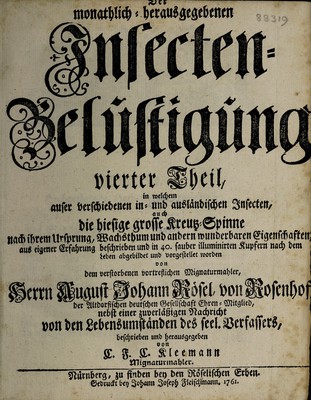 Der
monathlich-herausgegebenen
88319
Insecten-
Belustigung
vierter Theil,
in welchem
auser verschiedenen in- und ausländischen Insecten,
auch
die hiesige grosse Kreutz-Spinne
nach ihrem Ursprung, Wachsthum und andern wunderbaren Eigenschaften,
aus eigener Erfahrung beschrieben und in 40. sauber illuminirten Kupfern nach dem
Leben abgebildet und vorgestellet worden
von
dem verstorbenen vortreflichen Mignaturmahler,
Herrn August Johann Rösel von Rosenhof
der Altdorfischen deutschen Gesellschaft Ehren-Mitglied,
nebst einer zuverläßigen Nachricht
von den Lebensumständen des seel. Verfassers,
beschrieben und herausgegeben
von
C. F. C. Kleemann
Mignaturmahler.
Nürnberg, zu finden bey den Röselischen Erben.
Gedruckt bey Johann Joseph Fleischmann, 1761.